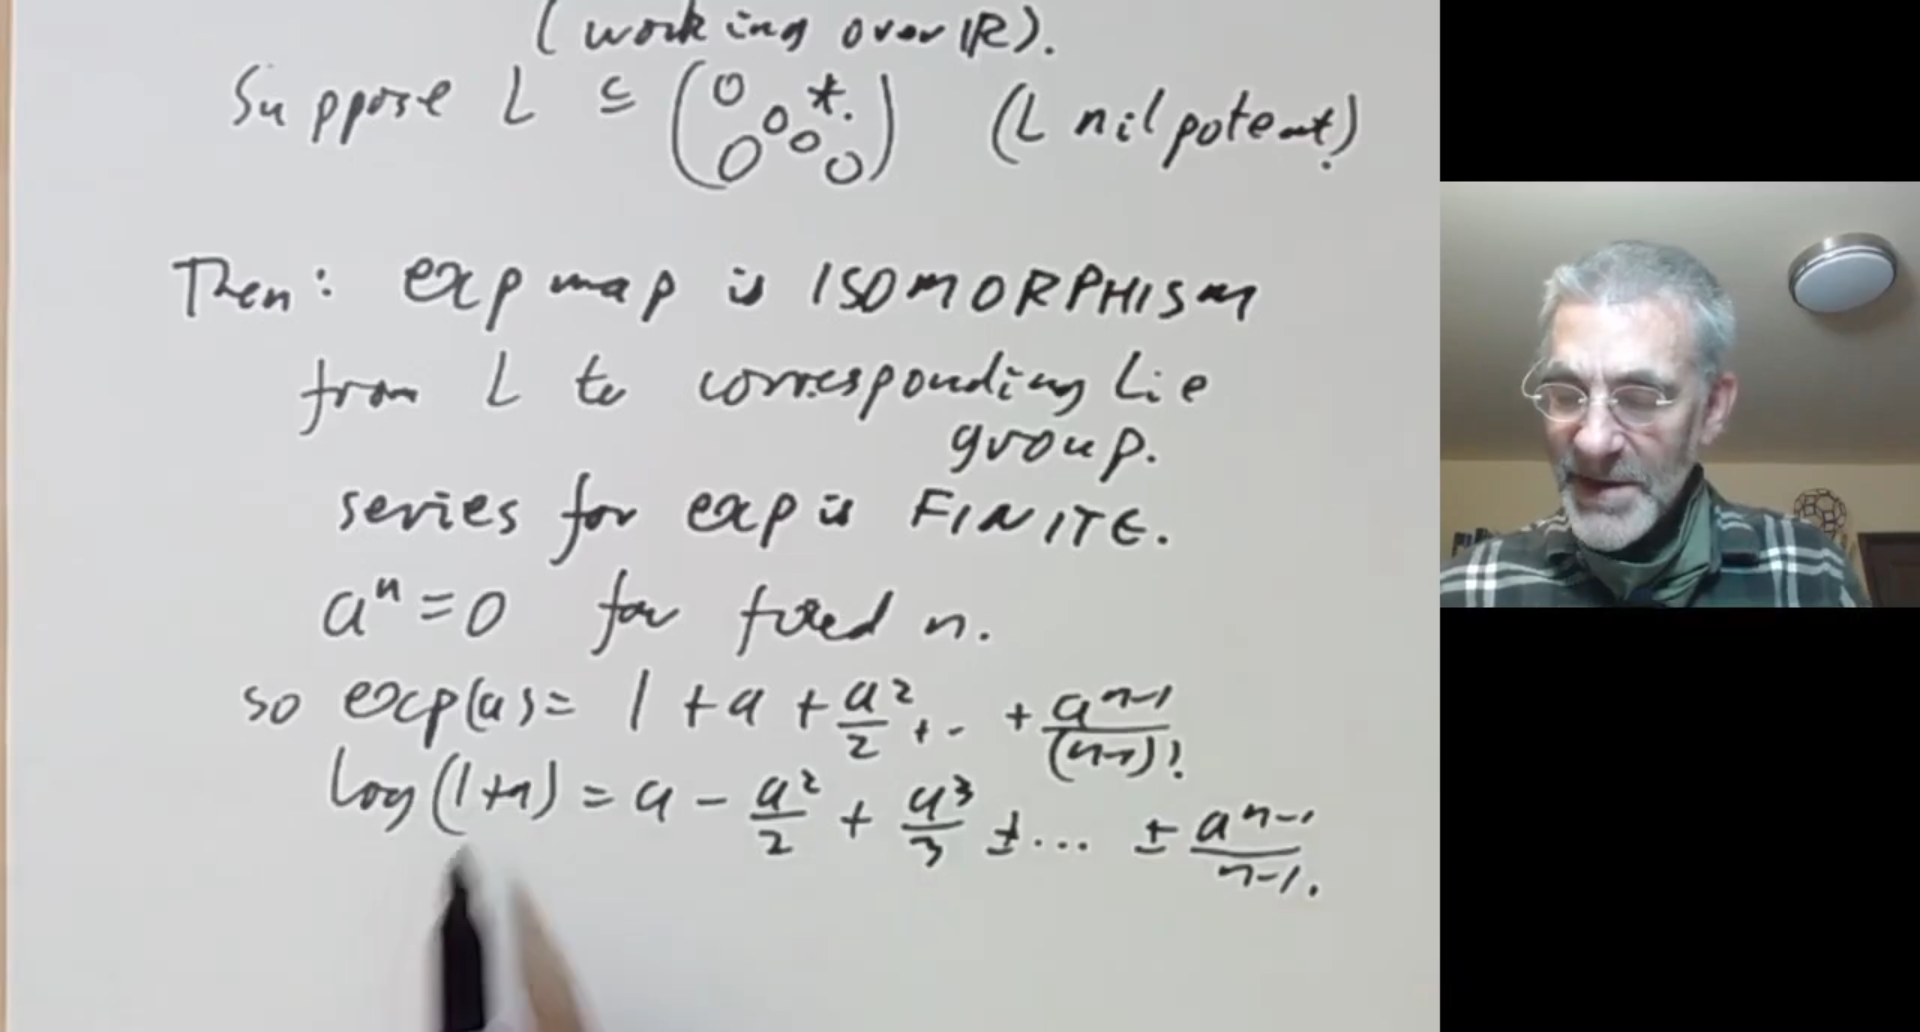 (working over ℝ).
Suppose L ⊆ (0 *. 0 0 0 0) (L nilpotent.)
Then: exp map is ISOMORPHISM
from L to corresponding Lie
group.
series for exp is FINITE.
aⁿ = 0 for fixed n.
so exp(a) = 1 + a + a²/2 + .. + aⁿ⁻¹/(n-1)!
log(1+a) = a - a²/2 + a³/3 ± ... ± aⁿ⁻¹/n-1.